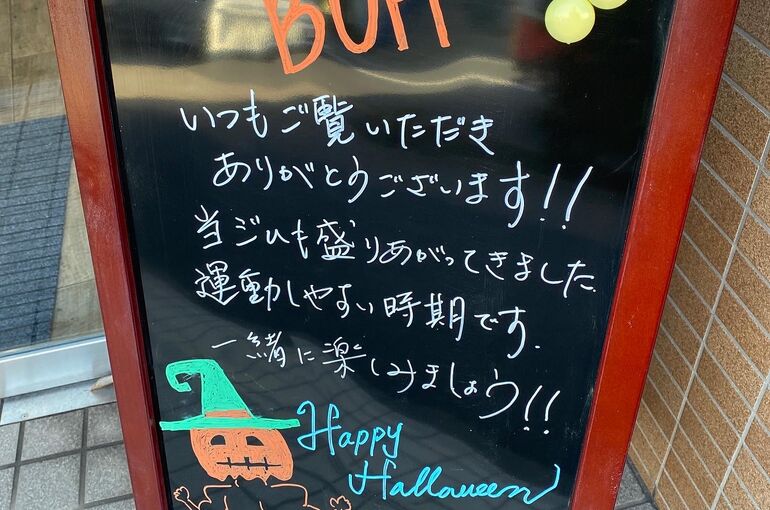 いつもご覧いただき
ありがとうございます!!
当ジムも盛りあがってきました.
運動しやすい時期です.
一緒に楽しみましょう!!
Happy
Halloween